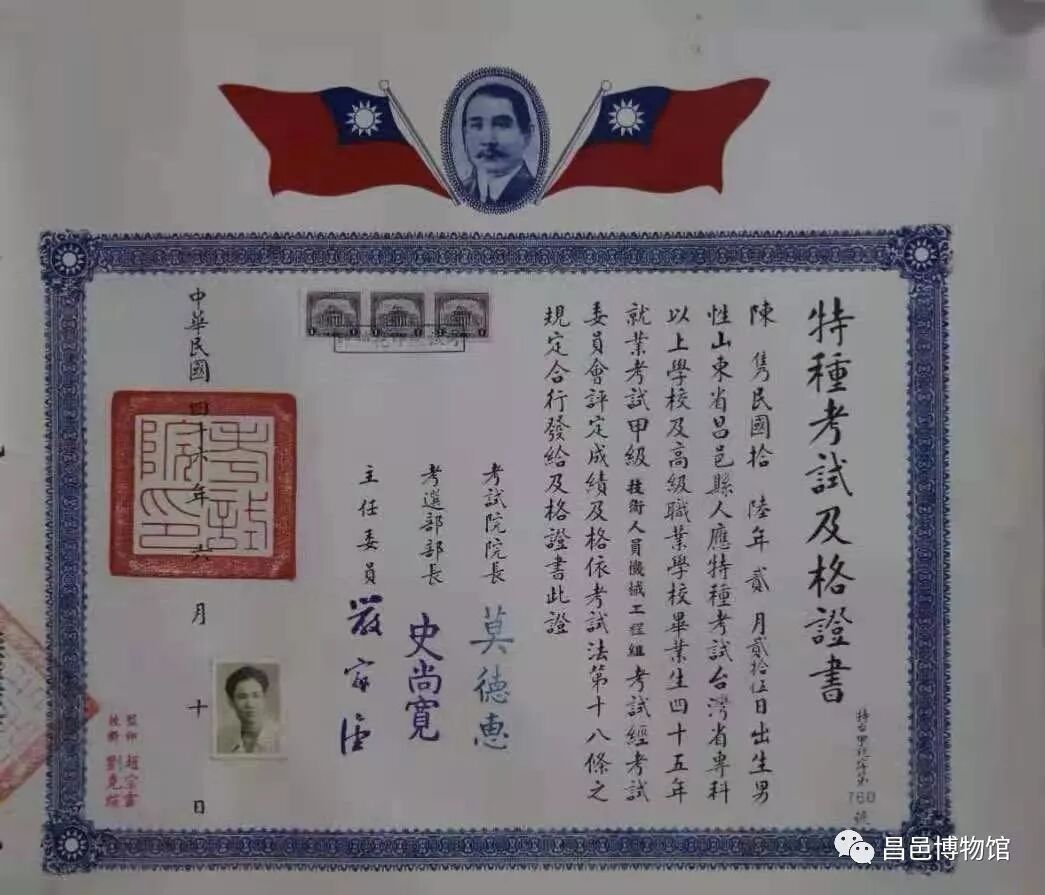 特種考試及格證書
陳 雋民國拾 陸年 貳 月貳拾伍日出生男
性山東省昌邑縣人應特種考試台灣省專科
以上學校及高級職業學校畢業生四十五年
就業考試甲級技術人員機械工程組考試經考試
委員會評定成績及格依考試法第十八條之
規定合行發給及格證書此證
考試院院長 莫德惠
考選部部長 史尚寬
主任委員 嚴家淦
中華民國四十六年六月十日
考試院印
760
號
監印 趙宗
校對 劉
昌邑博物馆